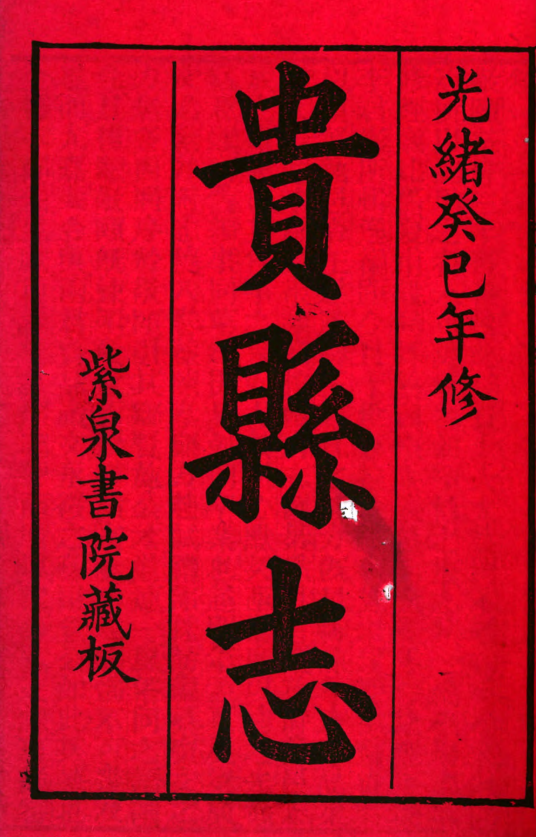 光緒癸巳年修
貴縣志
紫泉書院藏板